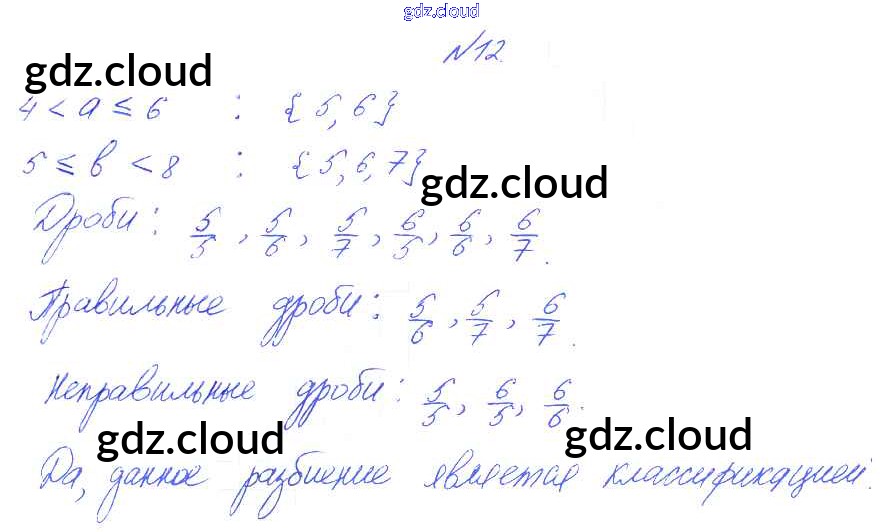 gdz.cloud
№12.
gdz.cloud
4 < a ≤ 6 : {5, 6}
5 ≤ b < 8 : {5, 6, 7}
gdz.cloud
Дроби: 5/5, 5/6, 5/7, 6/5, 6/6, 6/7.
Правильные дроби: 5/6, 5/7, 6/7.
Неправильные дроби: 5/5, 6/5, 6/6.
gdz.cloud gdz.cloud
Да, данное разбиение является классификацией.